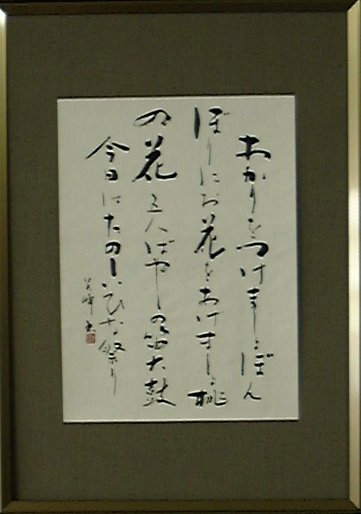 あかりをつけましょぼん
ぼりにお花をあげましょ桃
の花五人ばやしの笛太鼓
今日はたのしいひな祭り